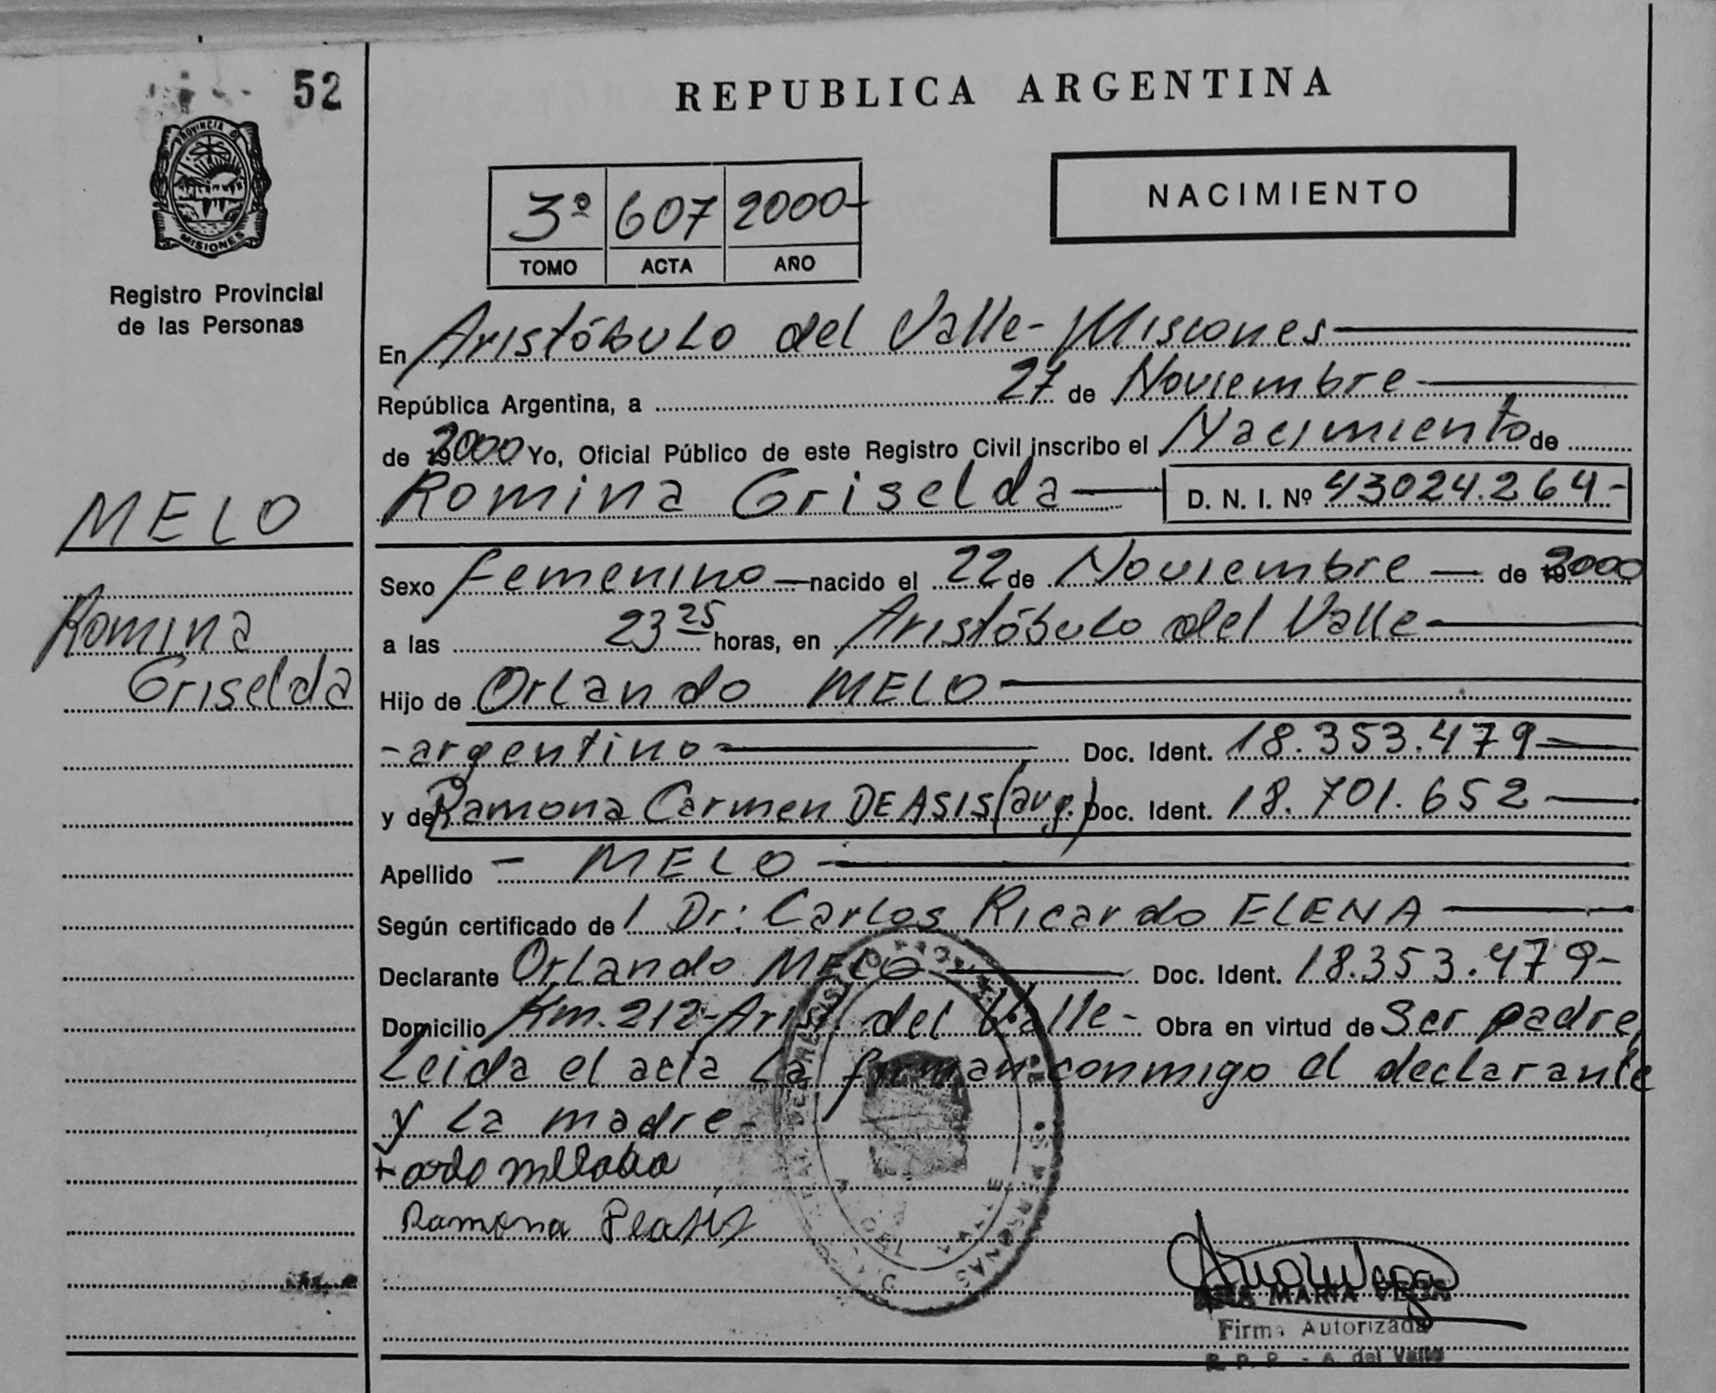 52
REPUBLICA ARGENTINA
PROVINCIA DE
MISIONES
Registro Provincial
de las Personas
3º 607 2000-
TOMO ACTA AÑO
NACIMIENTO
En Aristóbulo del Valle- Misiones
República Argentina, a 27 de Noviembre
de 2000 Yo, Oficial Público de este Registro Civil inscribo el Nacimiento de
Romina Griselda D. N. I. Nº 43024.264-
MELO
Romina
Griselda
Sexo femenino nacido el 22 de Noviembre de 2000
a las 23 25 horas, en Aristóbulo del Valle
Hijo de Orlando MELO
-argentino- Doc. Ident. 18.353.479
y de Ramona Carmen DE ASIS (arg.) Doc. Ident. 18.701.652
Apellido - MELO
Según certificado de l Dr: Carlos Ricardo ELENA
Declarante Orlando MELO Doc. Ident. 18.353.479-
Domicilio Km.212-Arist. del Valle- Obra en virtud de Ser padre,
Leida el acta la firman conmigo el declarante
y la madre-
Ramona
ANA MARIA VEGA
Firma Autorizada
R. P. P. - A. del Valle